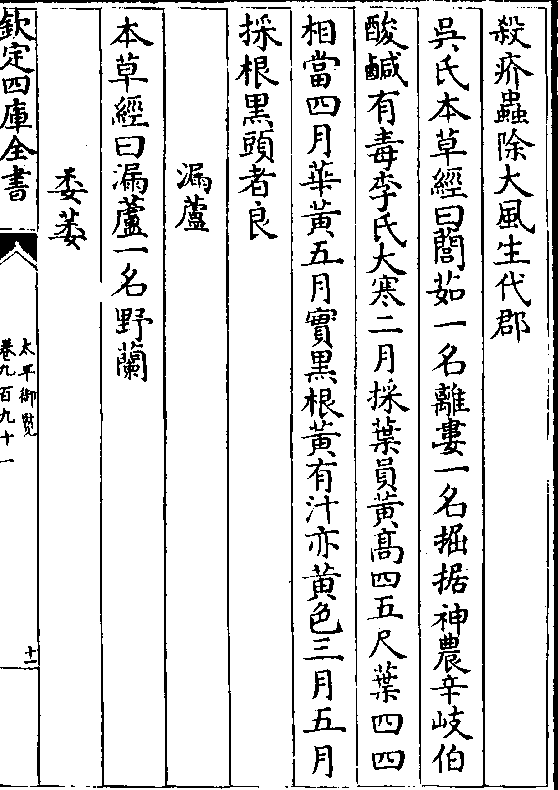 殺疥蟲除大風生代郡
吳氏本草經曰䕡茹一名離婁一名掘据神農辛岐伯
酸鹹有毒李氏大寒二月採葉員黃髙四五尺葉四四
相當四月華黃五月實黒根黃有汁亦黃色三月五月
採根黒頭者良
漏蘆
本草經曰漏蘆一名野蘭
委萎
欽定四庫全書
太平御覽
卷九百九十一
十二